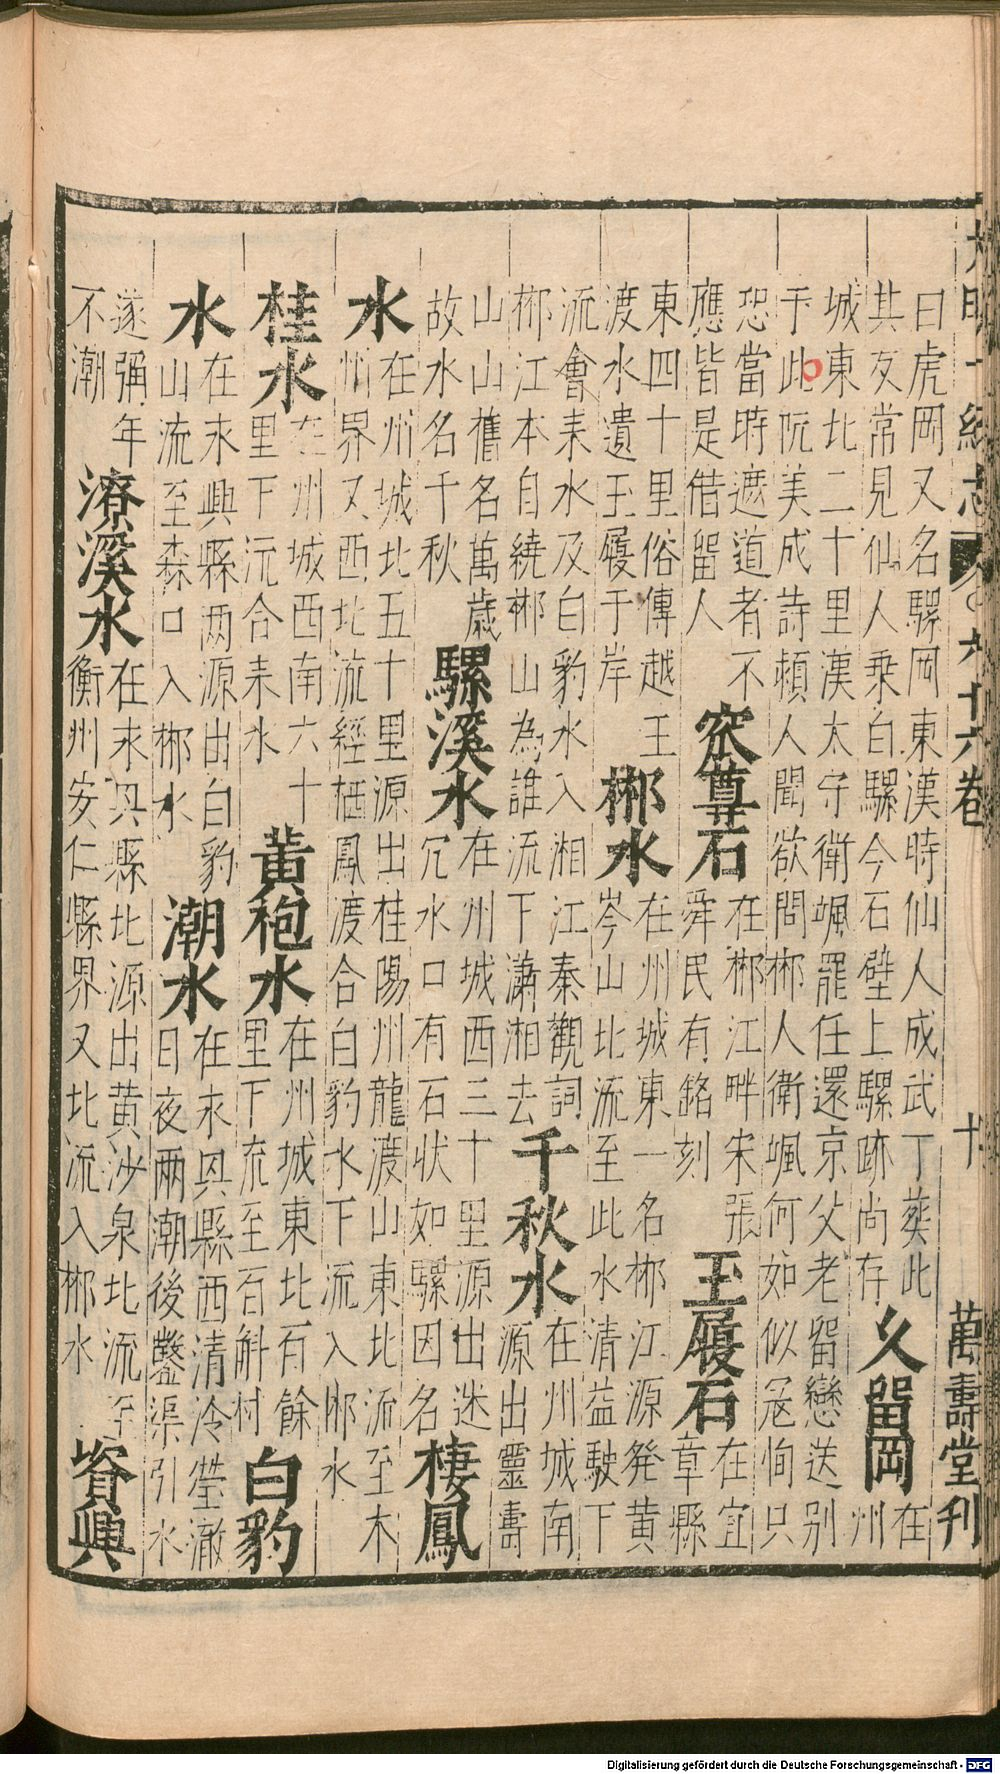 大明一統志 六十六卷 十 萬壽堂刊
曰虎岡又名騾岡東漢時仙人成武丁葬此
其友常見仙人乘白騾今石壁上騾跡尚存
久留岡
在
州
城東北二十里漢太守衛颯罷任還京父老留戀送别
于此阮美成詩頼人聞欲問郴人衛颯何如似冦恂只
恐當時遮道者不
應皆是借留人
窊尊石
在郴江畔宋張
舜民有銘刻
玉履石
在宜
章縣
東四十里俗傳越王
渡水遺玉履于岸
郴水
在州城東一名郴江源発黄
岑山北流至此水清益駛下
流會耒水及白豹水入湘江秦觀詞
郴江本自繞郴山為誰流下瀟湘去
千秋水
在州城南
源出靈壽
山山舊名萬歲
故水名千秋
騾溪水
在州城西三十里源出迷
穴水口有石状如騾因名
棲鳳
水
在州城北五十里源出桂陽州龍渡山東北流至木
州界又西北流經栖鳳渡合白豹水下流入郴水
桂水
在州城西南六十
里下沅合耒水
黄袍水
在州城東北百餘
里下流至百斛村
白豹
水
在永興縣两源出白豹
山流至森口入郴水
潮水
在永興縣西清冷瑩澈
日夜兩潮後鑿渠引水
遂彌年
不潮
潦溪水
在永興縣北源出黄沙泉北流至
衡州安仁縣界又北流入郴水
資興
Digitalisierung gefördert durch die Deutsche Forschungsgemeinschaft - DFG